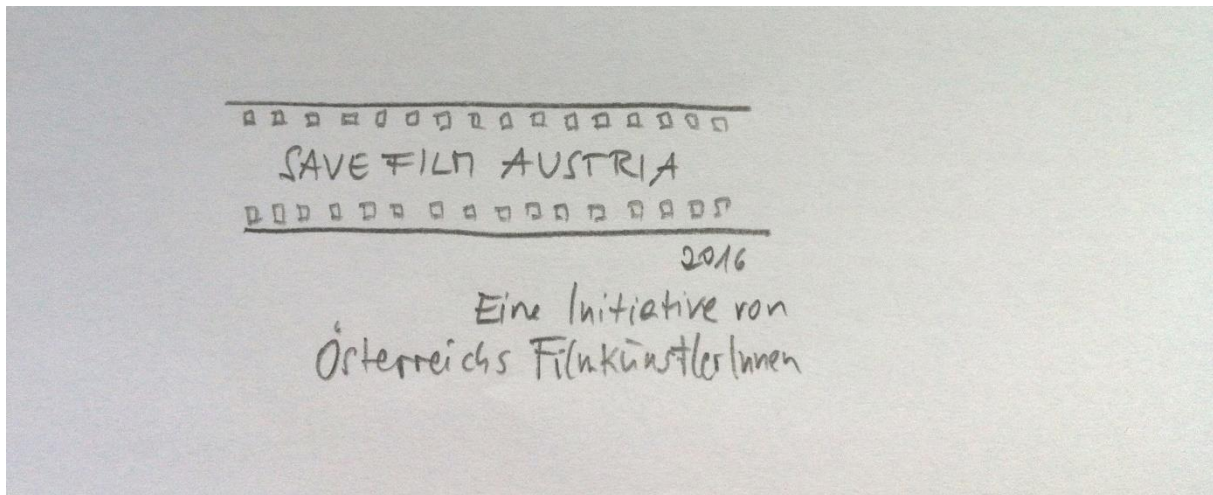 SAVE FILM AUSTRIA
2016
Eine Initiative von
Österreichs FilmkünstlerInnen